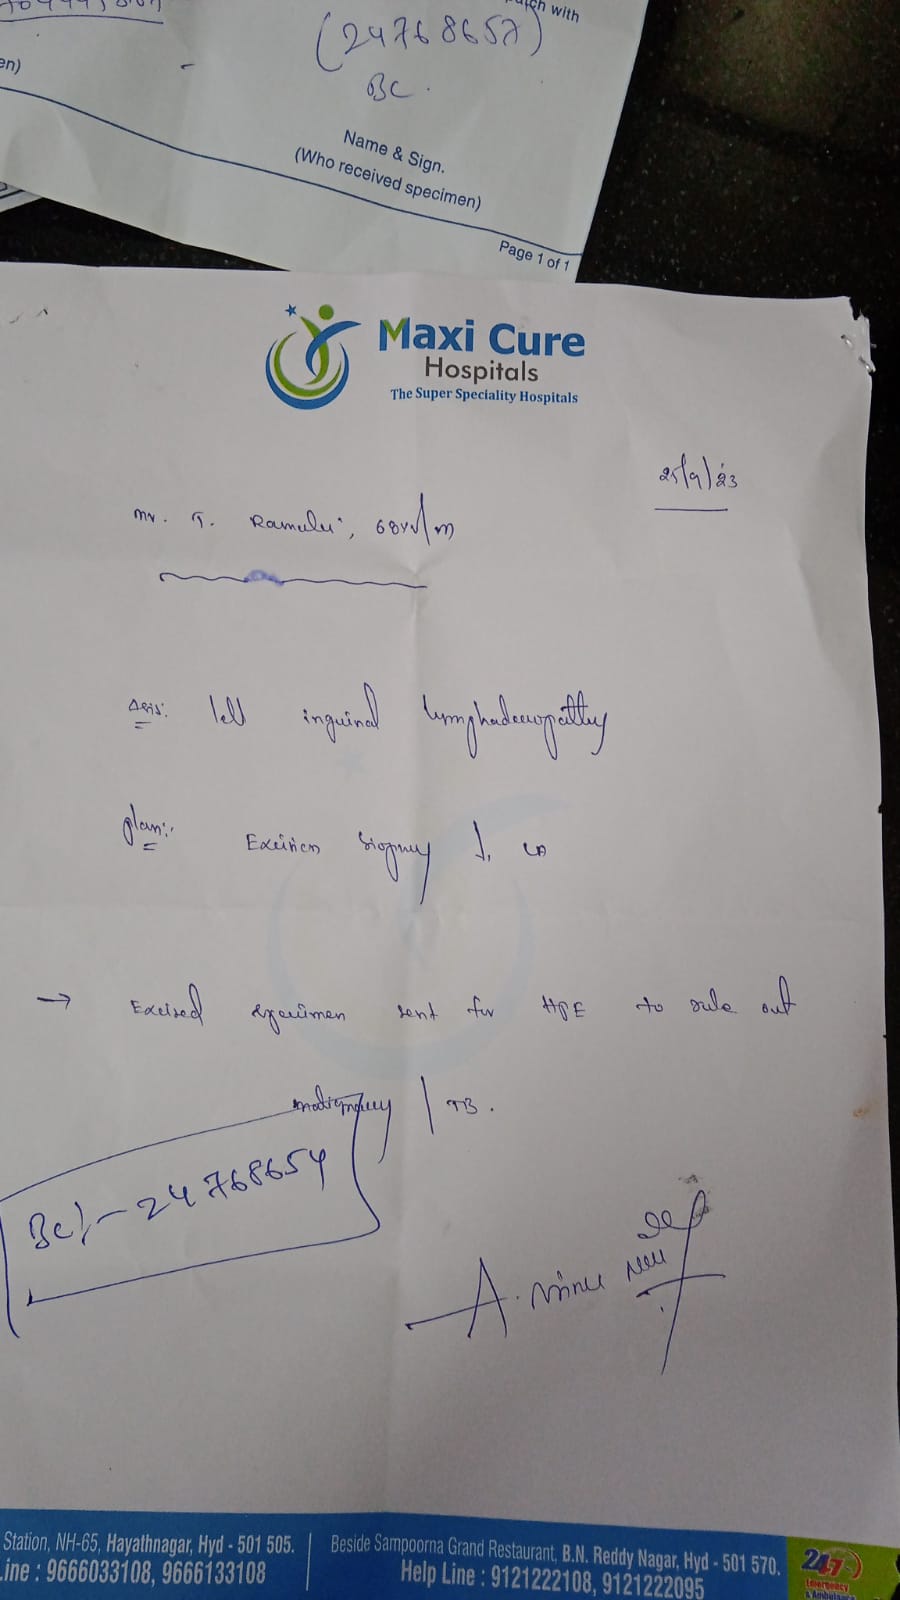 (24768657)
BC.
Name & Sign.
(Who received specimen)
Page 1 of 1
en)
Maxi Cure
Hospitals
The Super Speciality Hospitals
25/9/23
Mr. T. Ramulu, 68yrs/M
left inguinal lymphadenopathy
Plan:
Excision biopsy LA
→ Excised specimen sent for HPE to rule out
malignancy / TB.
BC:- 24768654
A.
Station, NH-65, Hayathnagar, Hyd - 501 505.
Line : 9666033108, 9666133108
Beside Sampoorna Grand Restaurant, B.N. Reddy Nagar, Hyd - 501 570.
Help Line : 9121222108, 9121222095
24x7
Emergency
& Ambulance